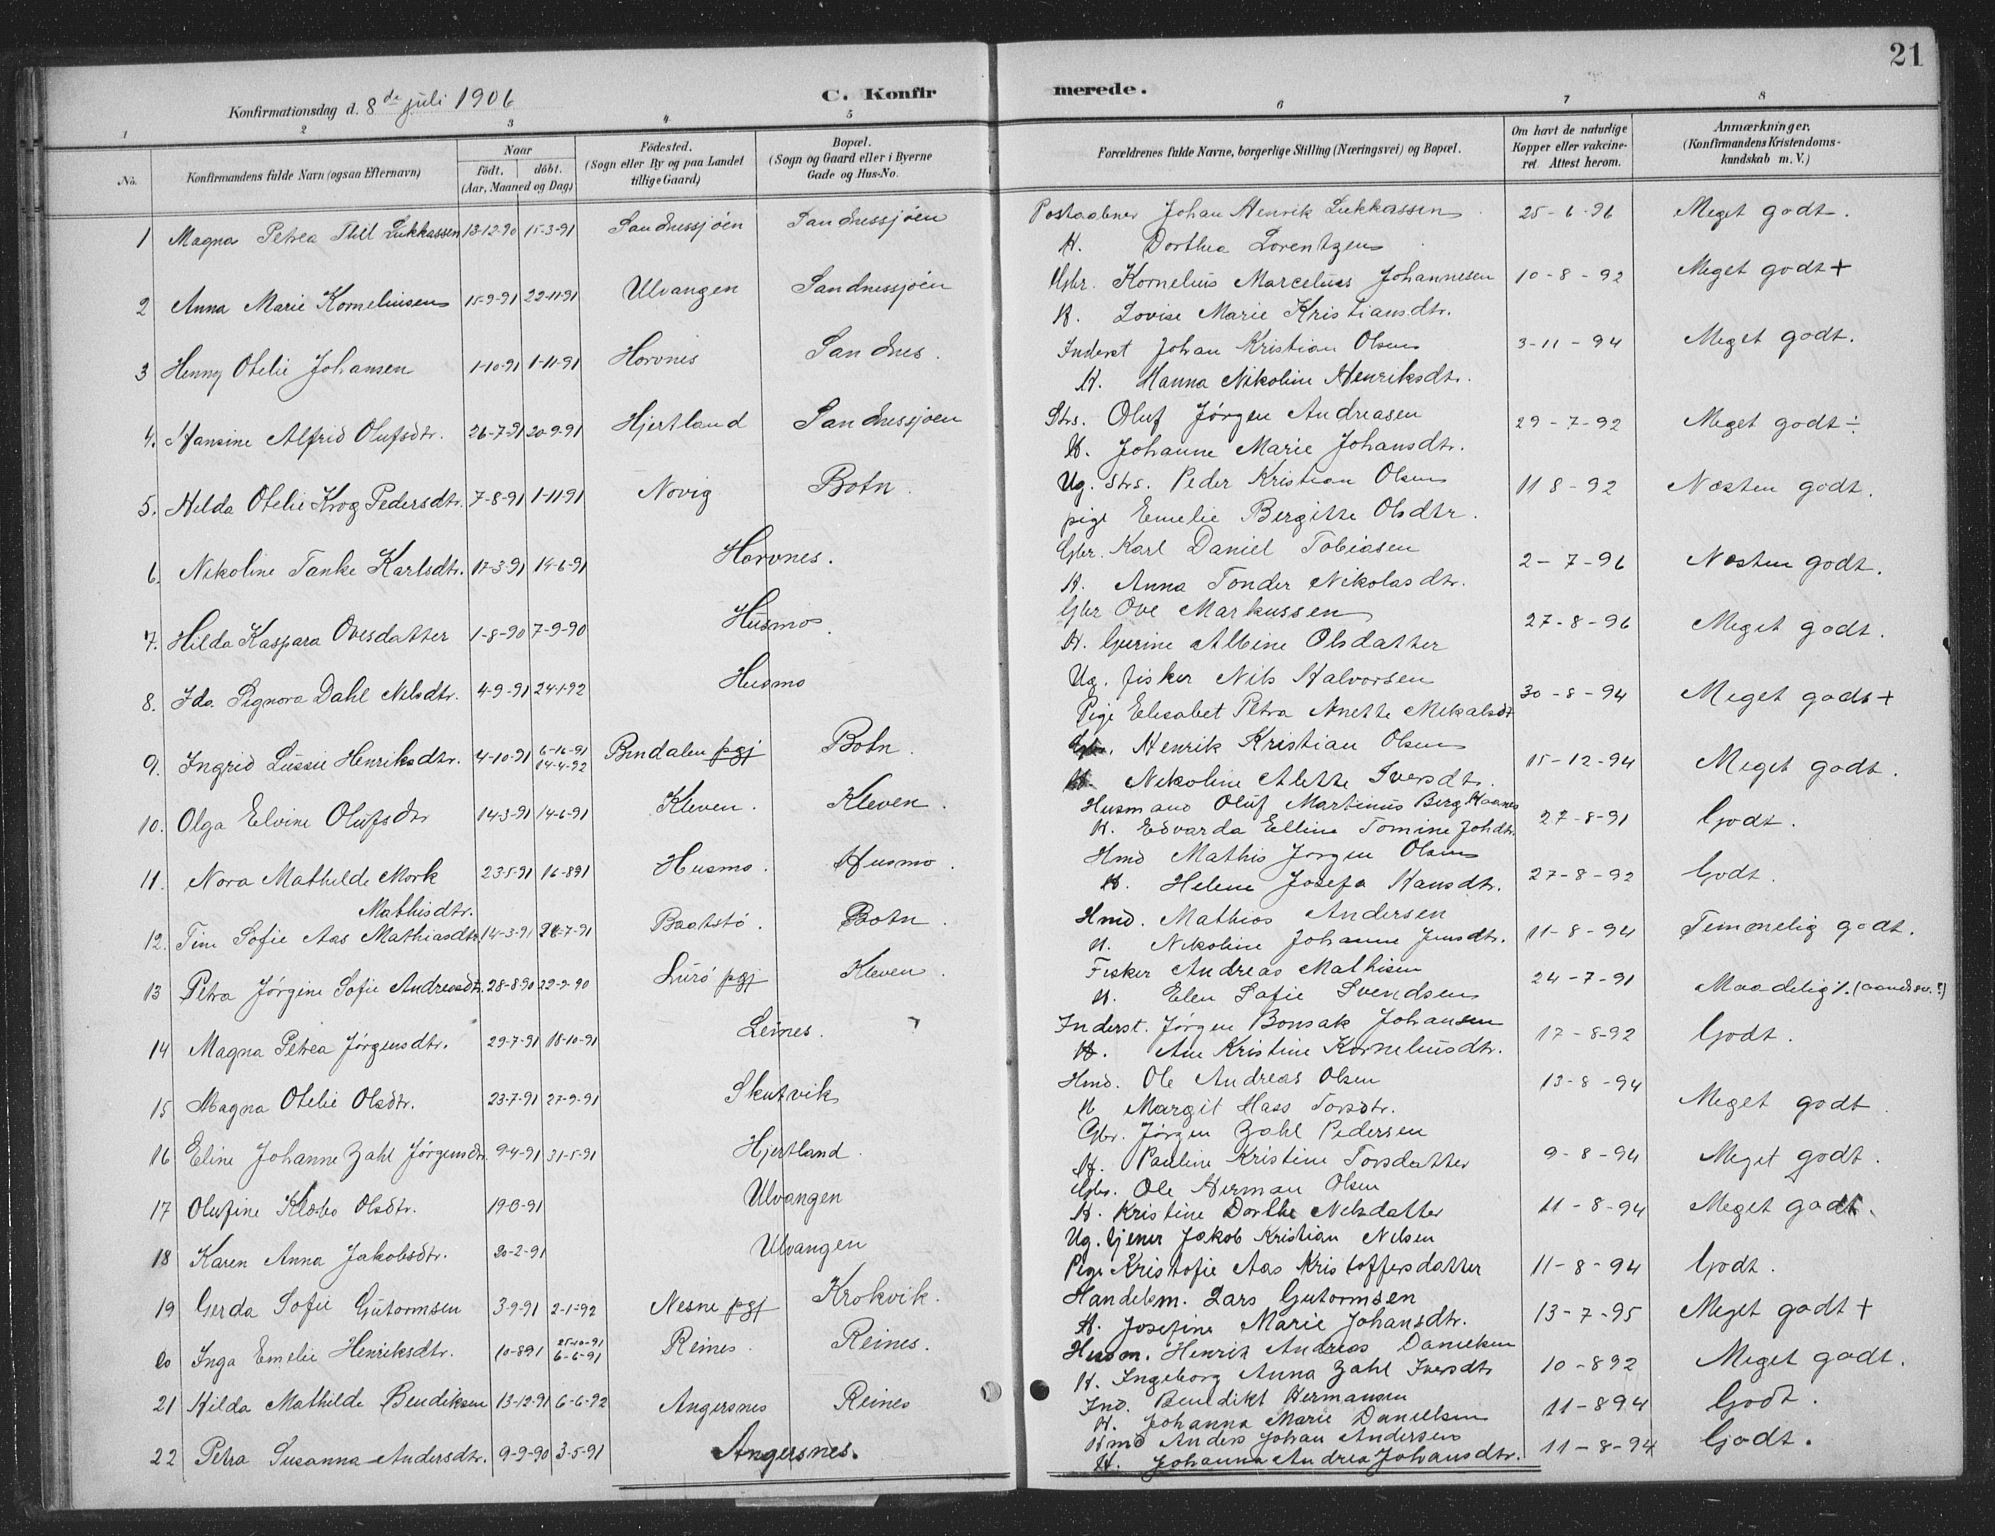 21
Konfirmationsdag d. 8de juli 1906
C. Konfirmerede.
1 2 3 4 5 6 7 8
No.
Konfirmandens fulde Navn (ogsaa Efternavn)
Naar
født. døbt.
(Aar, Maaned og Dag)
Fødested.
(Sogn eller By og paa Landet
tillige Gaard)
Bopæl.
(Sogn og Gaard eller i Byerne
Gade og Hus-No.
Forældrenes fulde Navne, borgerlige Stilling (Næringsvei) og Bopæl.
Om havt de naturlige
Kopper eller vakcine-
ret. Attest herom.
Anmærkninger.
(Konfirmandens Kristendoms-
kundskab m. V.)
1 Magna Petrea Lukkassen 13-12-90 15-3-91 Sandnessjøen Sandnessjøen Postaabner Johan Henrik Lukkassen 25-6-96 Meget godt.
H. Dorthea Lorentzen
2 Anna Marie Korneliusen 15-9-91 22-11-91 Ulvangen Sandnessjøen Gbr. Kornelius Marcelius Johannesen 10-8-92 Meget godt +
H. Lovise Marie Kristiansdtr.
3 Henny Otelie Johansen 1-10-91 1-11-91 Horvnes Sandnes. Inderst Johan Kristian Olsen 3-11-94 Meget godt.
H. Hanna Nikoline Henriksdtr.
4. Hansine Alfrid Olufsdtr. 26-7-91 20-9-91 Hjertland Sandnessjøen Strs. Oluf Jørgen Andreasen 29-7-92 Meget godt ÷
H. Johanne Marie Johansdtr.
5. Hilda Otelie Krog Pedersdtr. 7-8-91 1-11-91 Novig Botn. Ug. Strs. Peder Kristian Olsen 11 8-92 Næsten godt.
pige Emelie Bergitte Olsdtr.
6. Nikoline Tanke Karlsdtr. 17-3-91 14-6-91 Horvnes. Gbr. Karl Daniel Tobiasen 2-7-96 Næsten godt.
H. Anna Tonder Nikolasdtr.
7. Hilda Kaspara Ovesdatter 1-8-90 7-9-90 Husmo Gbr Ove Markussen 27-8-96 Meget godt.
H. Gurine Albine Olsdatter
8. Ida Signora Dahl Nilsdtr. 4-9-91 24-1-92 Husmo Ug. fisker Nils Halvorsen 30-8-94 Meget godt +
Pige Elisabet Petra Anette Mikalsdt
9. Ingrid Lussie Henriksdtr. 4-10-91 14-4-92 Bindalen pgj Botn. Gbr. Henrik Kristian Olsen 15-12-94 Meget godt.
H. Nikoline Alette Iversdt.
10. Olga Elvine Olufsdtr 14-3-91 14-6-91 Kleven. Kleven. Husmand Oluf Martinus Berg Haanes 27-8-91 Godt.
H. Edvarda Elline Tomine Johdtr.
11. Nora Mathilde Mork 23 5-91 16-8 91 Husmo. Husmo. Hmd Mathis Jørgen Olsen 27-8-92 Godt.
Mathisdtr. H. Helene Josefa Hansdtr.
12. Tine Sofie Aas Mathiasdtr. 14-3-91 26-7-91 Baatstø. Botn. Hmd. Mathias Andersen 11-8-94 Temmelig godt.
H. Nikoline Johanne Jensdtr.
13 Petra Jørgine Sofie Andreasdtr. 28-8-90 22-9-90 Lurø pgj Kleven. Fisker Andreas Mathisen 24-7-91 Maadelig
H. Elen Sofie Svendsen
14 Magna Petrea Jørgensdtr. 29-7-91 18-10-91 Leines. Inderst. Jørgen Bonsak Johansen 17-8-92 Godt.
H. Ane Kristine Korneliusdtr.
15 Magna Otelie Olsdtr. 23-7-91 27-9-91 Skutvik Hmd. Ole Andreas Olsen 13-8-94 Meget godt
H Margit Hass Torsdtr.
16 Eline Johanne Zahl Jørgensdtr. 9-4-91 31-5-91 Hjertland. Gbr. Jørgen Zahl Pedersen 9-8-94 Meget godt.
H. Pauline Kristine Torsdatter
17 Olufine Klæbo Olsdtr. 19-6-91 Ulvangen Gbr. Ole Herman Olsen 11-8-94 Meget godt.
H. Kristine Dorthe Nelsdatter
18 Karen Anna Jakobsdtr. 20-2-91 Ulvangen Ug. tjener Jakob Kristian Nelsen
Pige Kristofie Aas Kristoffersdatter 11-8-94 Godt.
19 Gerda Sofie Gutormsen 3-9-91 2-1-92 Nesne pgj Krokvik. Handelsm. Lars Gutormsen 13-7-95 Meget godt +
H. Josefine Marie Johansdtr.
20 Inga Emelie Henriksdtr. 10-8 91 25-10-91 6-6-91 Reines. Reines. Husm. Henrik Andreas Danielsen 10-8 92 Meget godt.
H. Ingeborg Anna Zahl Iversdtr
21 Hilda Mathilde Bendiksen 13-12-91 6-6-92 Angersnes Reines Ind. Benedikt Hermansen 11-8 94 Godt.
H. Johanna Marie Danielsen
22 Petra Susanna Andersdtr. 9-9-90 3-5-91 Angersnes. Hmd Anders Johan Andersen 11-8-94 Godt.
H. Johanna Andrea Johansdtr.